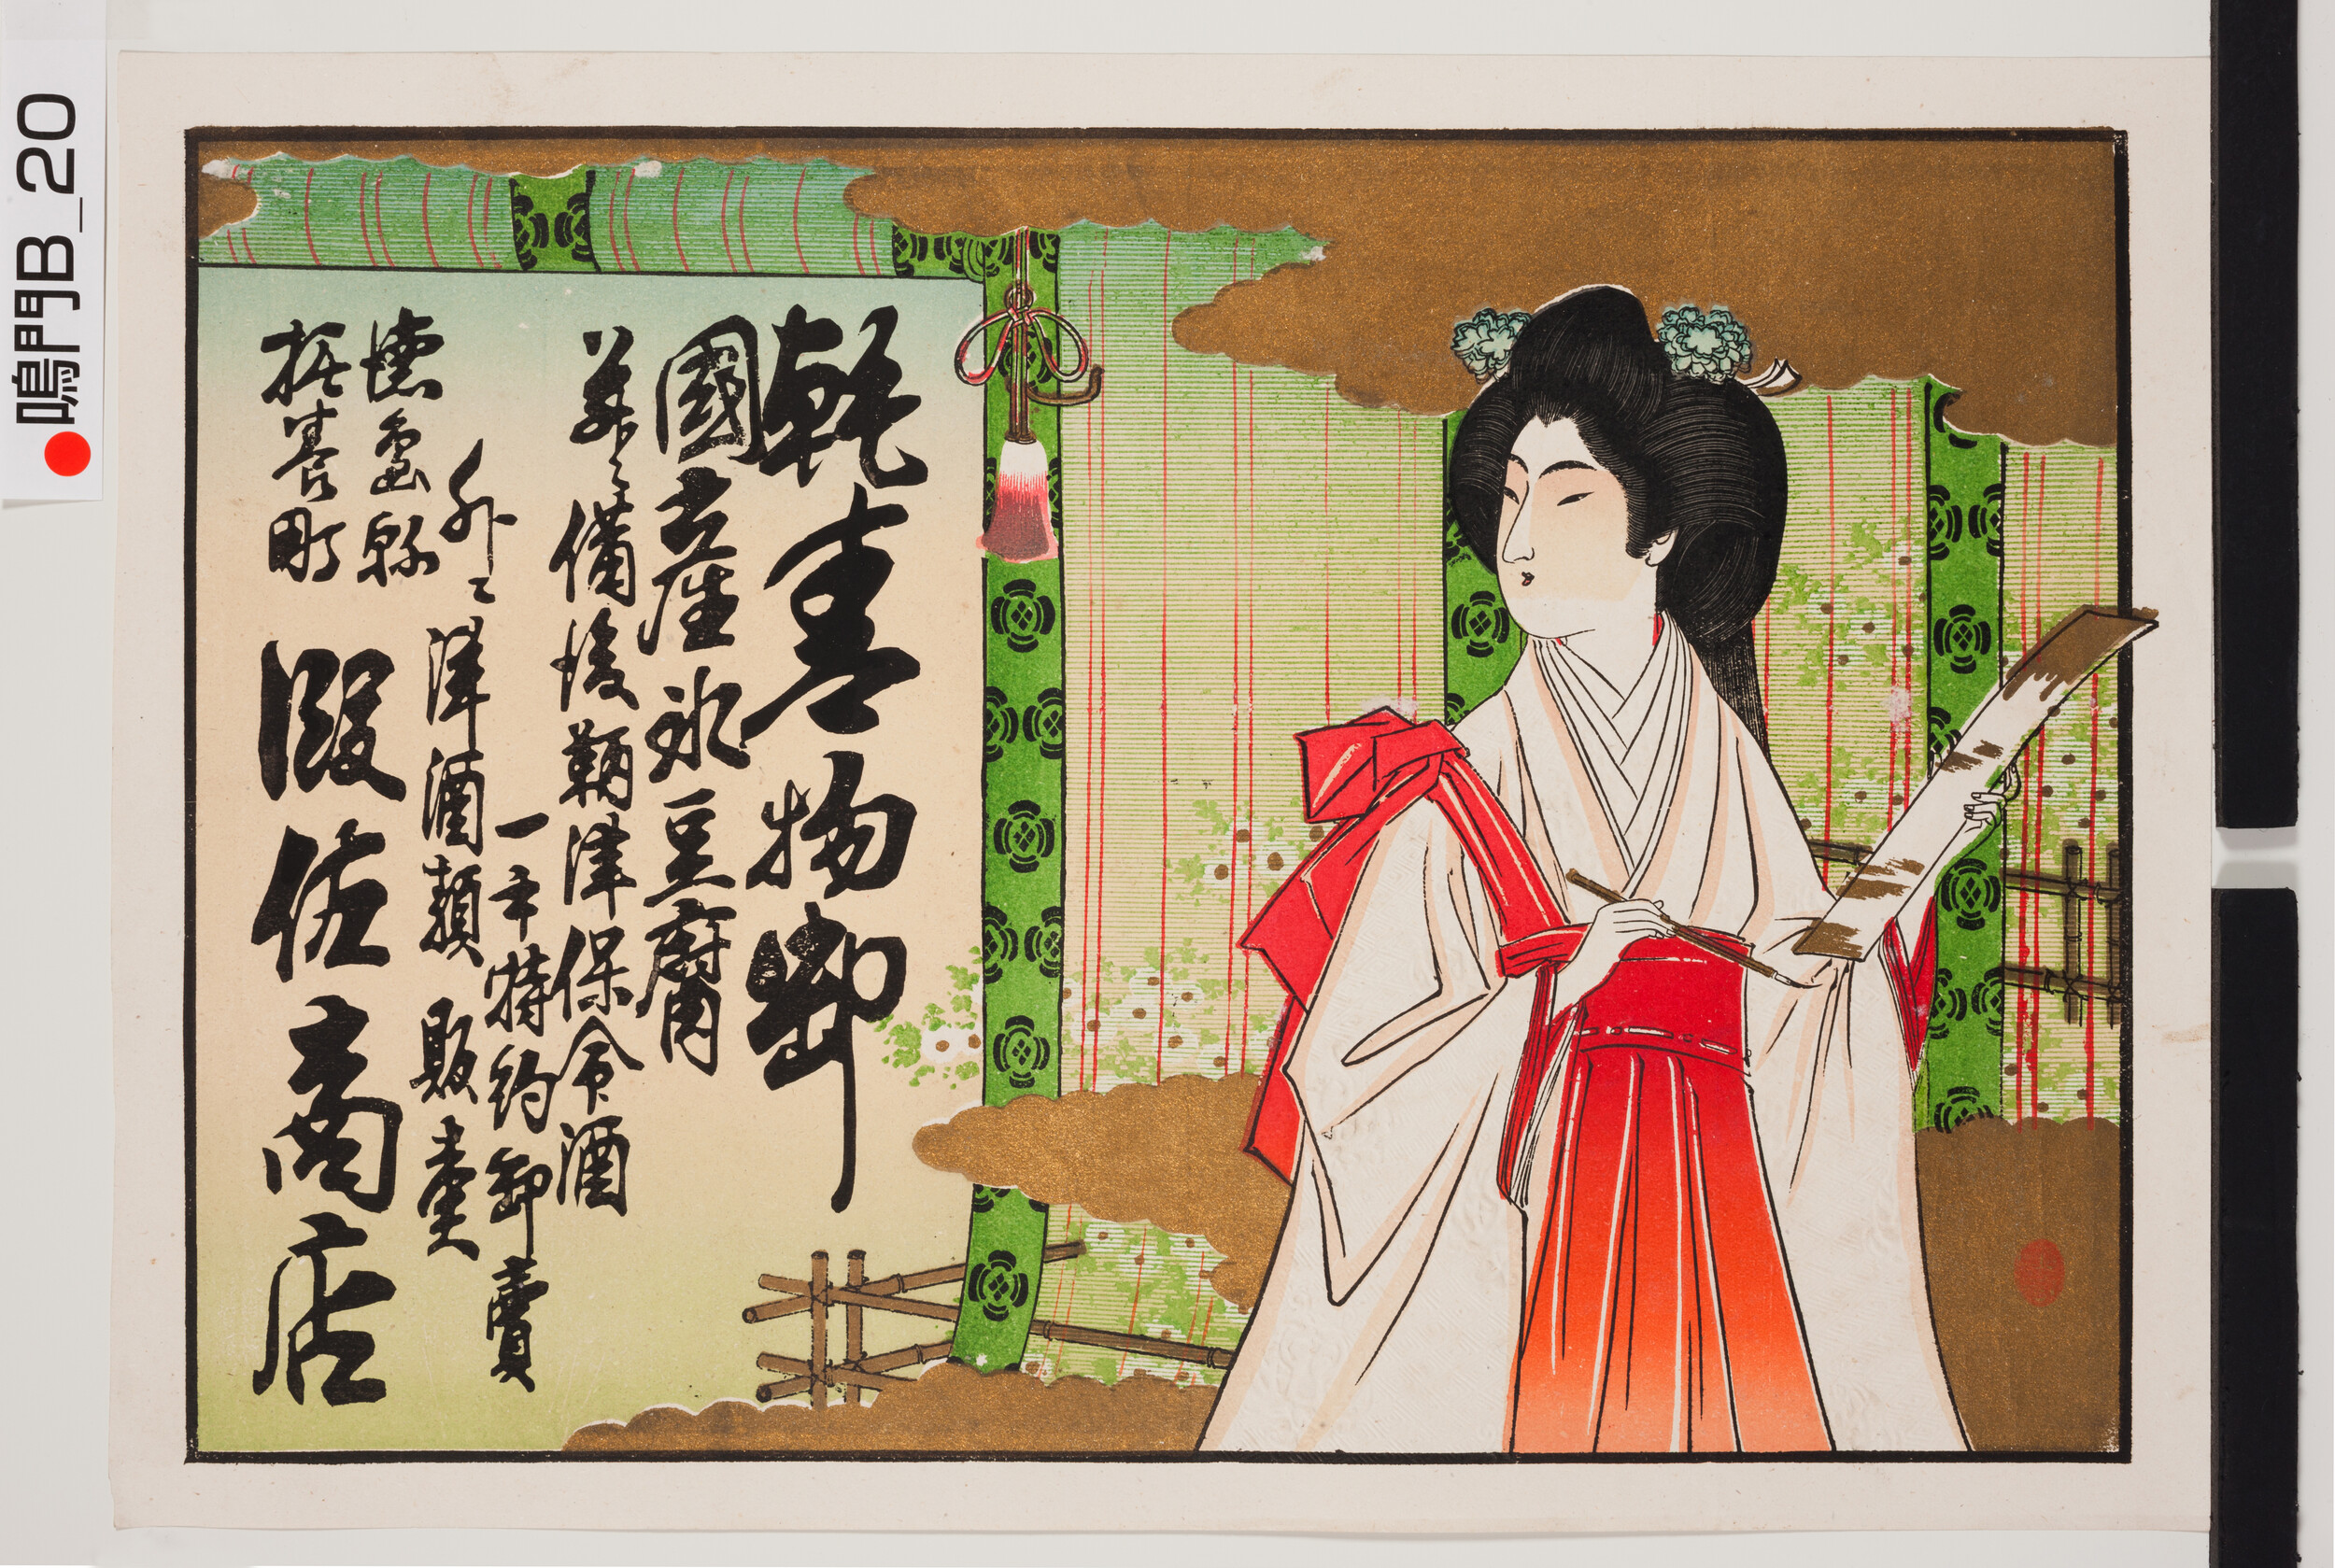 乾壳物卸
國産氷豆腐
並ニ備後鞆津保命酒
一手特約卸賣
外ニ洋酒類 販賣
徳島縣
撫養町
阪佐商店
鳴門B_20